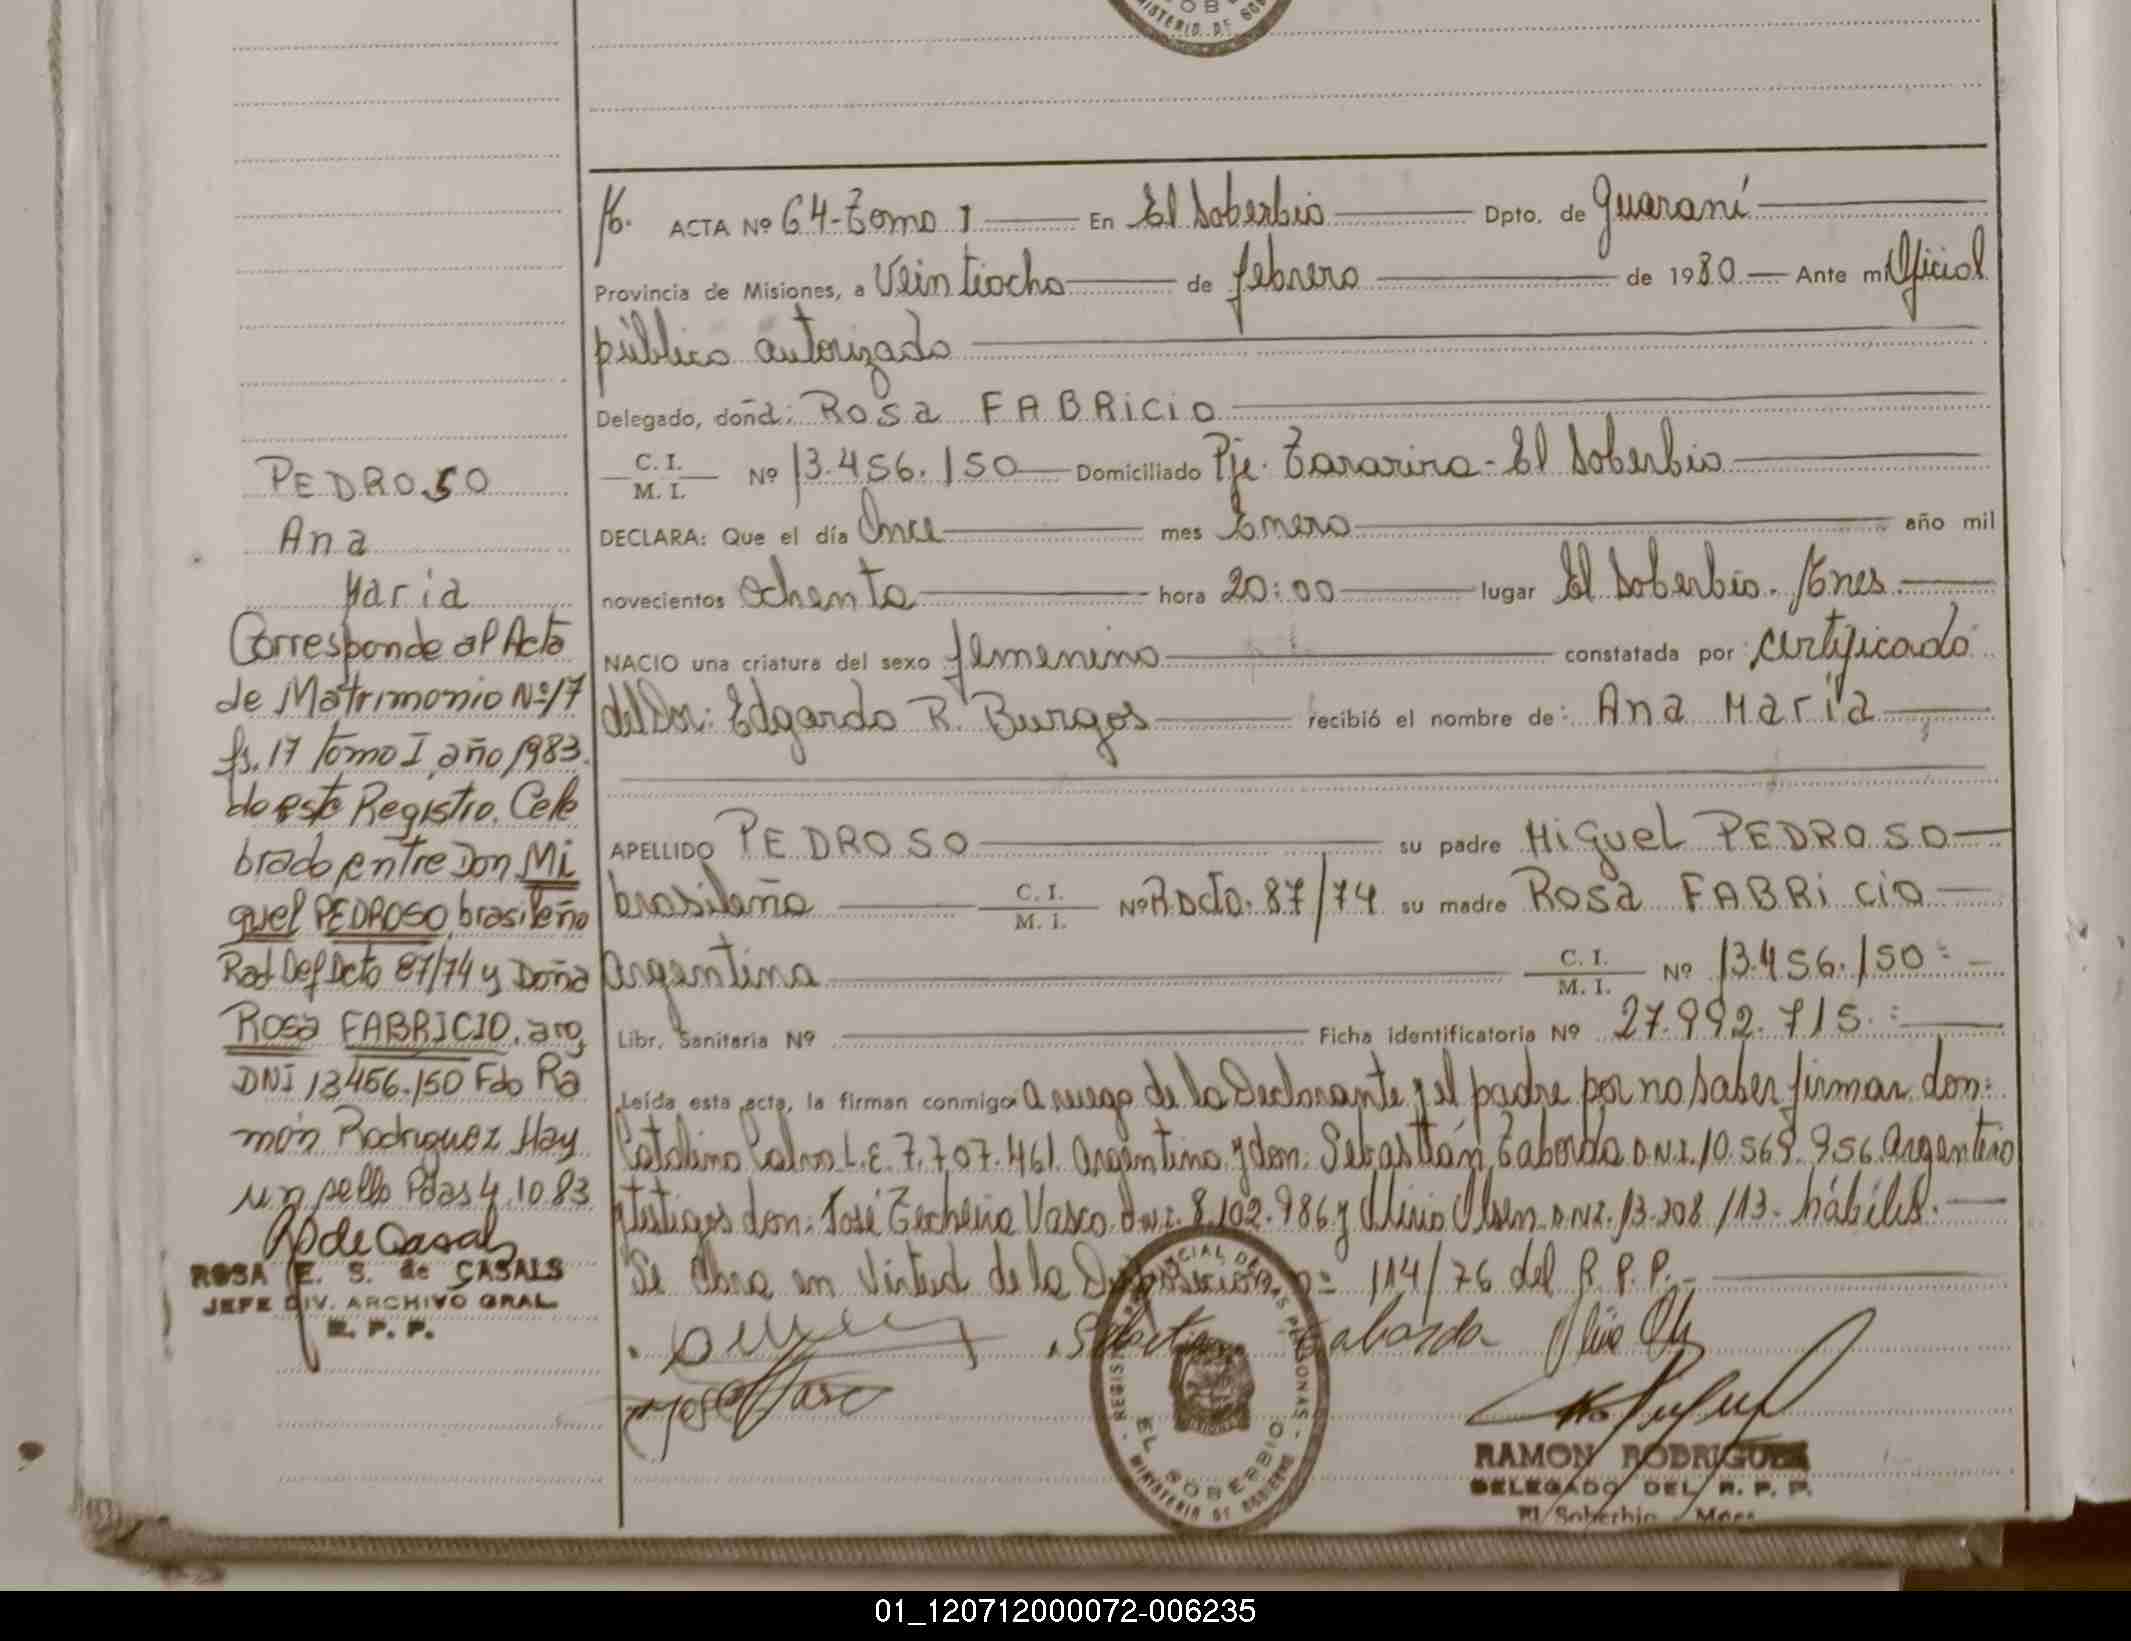 MINISTERIO DE GOB
PEDROSO
Ana
María
Corresponde al Acta
de Matrimonio Nº 17
fs. 17 Tomo I año 1983
do este Registro. Cele
brado entre Don Mi
guel PEDROSO brasileño
Rad Def Dcto 87/74 y Doña
Rosa FABRICIO, arg,
DNI 13456.150 Fdo Ra
món Rodriguez Hay
un sello Pdas 4.10.83
R de Casals
ROSA E. S. de CASALS
JEFE DIV. ARCHIVO GRAL.
R. P. P.
ACTA Nº 64-Tomo I En El Soberbio Dpto. de Guaraní
Provincia de Misiones, a Veintiocho de febrero de 1980 Ante mi Oficial
público autorizado
Delegado, doña: Rosa FABRiCiO
C. I.
M. I. Nº 13.456.150 Domiciliado Pje. Tararira - El Soberbio
DECLARA: Que el día Once mes Enero año mil
novecientos Ochenta hora 20:00 lugar El Soberbio. Mnes
NACIO una criatura del sexo femenino constatada por certificado
del Dr: Edgardo R. Burgos recibió el nombre de: Ana María
APELLIDO PEDROSO su padre Miguel PEDROSO
brasileño C. I.
M. I. Nº R Dcto. 87/74 su madre Rosa FABRiCiO
Argentina C. I.
M. I. Nº 13.456.150
Libr. Sanitaria Nº Ficha identificatoria Nº 27.992.715
Leída esta acta, la firman conmigo: A ruego de la Declarante y el padre por no saber firmar don:
Catalino L.E 7.707.461 Argentino y don: Sebastián Taborda D.N.I. 10.569.956 Argentino
testigos don: José Vasco D.N.I. 8.102.986 y Olsen D.N.I. 13.208.113 hábiles.
Se Obra en Virtud de la Disposición nº 114/76 del R.P.P.
Sebastian Taborda
José Vasco
REGISTRO PROVINCIAL DE LAS PERSONAS
EL SOBERBIO
MINISTERIO DE GOBIERNO
RAMON RODRIGUEZ
DELEGADO DEL R. P. P.
El Soberbio - Mnes
01_120712000072-006235